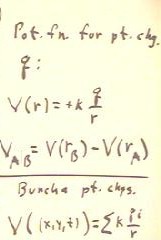 Pot. fn. for pt. chg.
q:
V(r) = +k q/r
V_AB = V(r_B) - V(r_A)
Buncha pt. chgs.
V((x,y,z)) = Σ k q_i/r_i